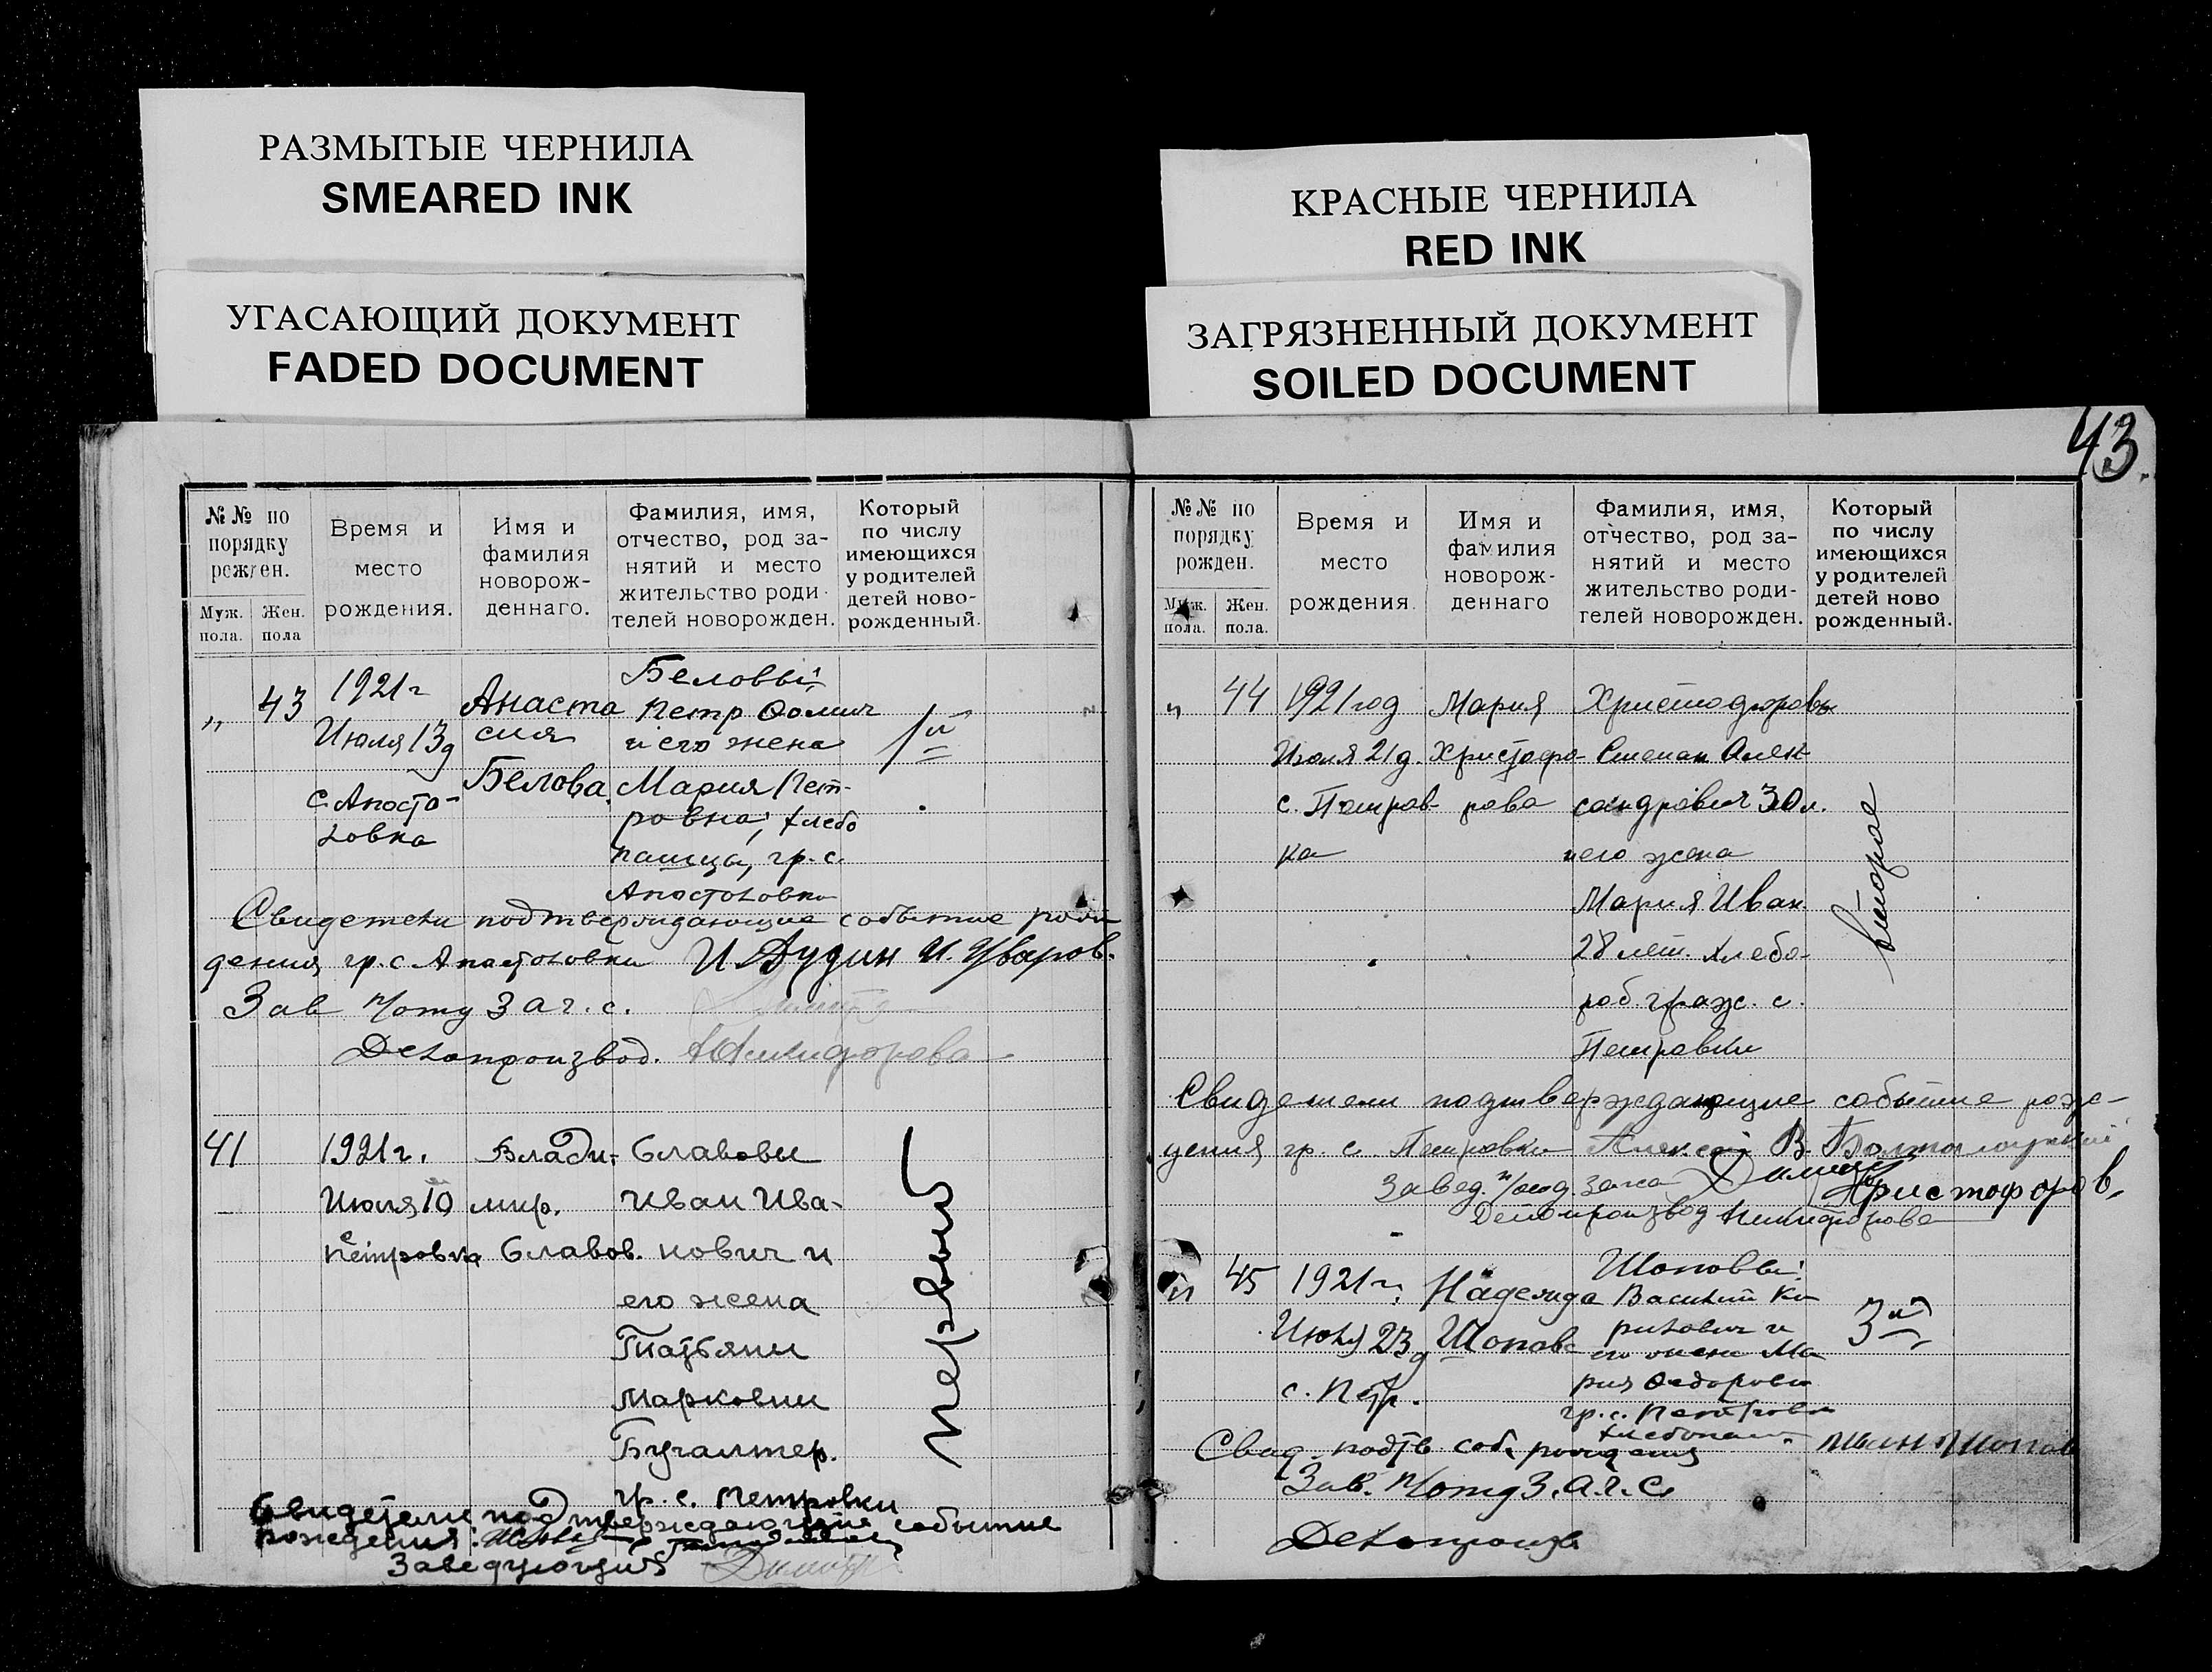 РАЗМЫТЫЕ ЧЕРНИЛА
SMEARED INK
УГАСАЮЩИЙ ДОКУМЕНТ
FADED DOCUMENT
КРАСНЫЕ ЧЕРНИЛА
RED INK
ЗАГРЯЗНЕННЫЙ ДОКУМЕНТ
SOILED DOCUMENT
№№ по
порядку
рожден.
Муж.
пола.
Жен.
пола
Время и
место
рождения.
Имя и
фамилия
новорож-
деннаго.
Фамилия, имя,
отчество, род за-
нятий и место
жительство роди-
телей новорожден.
Который
по числу
имеющихся
у родителей
детей ново-
рожденный.
„
43
1921г
Июля 13д
с. Апосто-
ловка
Анаста
сия
Белова.
Беловы:
Петр Фомич
и его жена
Мария Пет-
ровна, хлебо
пашцы, гр. с.
Апостоловки
1й
Свидетели подтверждающие событие рож
дения гр. с Апостоловки И Дудин И. Уваров.
Зав п/отд З а г. с.
Делопроизвод. Никифорова
41
1921г.
Июля 10
Петровка
Влади-
мир.
Славов.
Славовы
Иван Ива-
нович и
его жена
Татьяни
Марковни
Бугалтер.
гр. с. Петровки
первый
Свидетели подтверждающие событие
рождения:
Заведующий
43.
№№ по
порядку
рожден.
Муж.
пола.
Жен.
пола.
Время и
место
рождения.
Имя и
фамилия
новорож-
деннаго
Фамилия, имя,
отчество, род за-
нятий и место
жительство роди-
телей новорожден.
Который
по числу
имеющихся
у родителей
детей ново
рожденный.
„
44
1921 год
Июля 21д.
с. Петров-
ка
Мария
Христофо-
рова
Христофоровы
Степан Алек
сандрович 30 л.
и его жена
Мария Иван.
28 лет. хлебо-
роб. граж. с.
Петровки
второе
Свидетели подтверждающие событие рож-
дения гр. с. Петровки Алексей В.
Завед. п/отд. загса Христофоров,
Делопроизвод Никифорова
„
45
1921г,
Июля 23д
с. Петр.
Надежда
Шопова
Шоповы:
Василий Ки
рилович и
его жена Ма
рия Федоровн
гр. с. Петровки
хлебопаш.
3й
Свид. подтв соб. рождения Шопов
Зав. п/отд З. а. г. с.
Делопроизв.